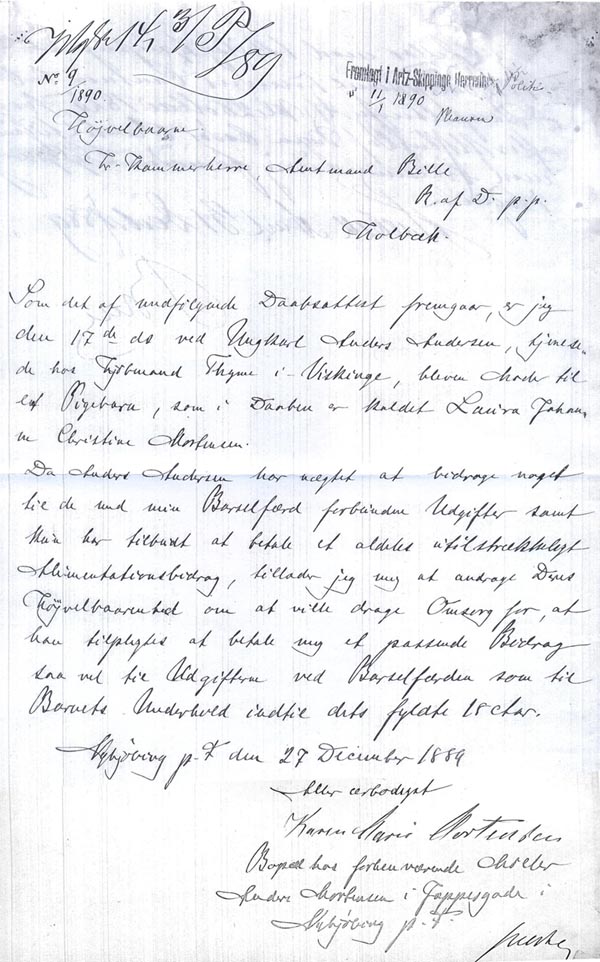 14/1 3/ P/89
No 9
/1890.
Fremlagt i Artz-Skippinge Herreders Politi
11/1 1890
Højvelbaarne
Hr. Kammerherre, Amtmand Bille
R. af D. p.p.
Holbæk.
Som det af medfølgende Daabsattest fremgaar, er jeg
den 17de ds ved Ungkarl Anders Andersen, tjenen-
de hos Thyme i Viskinge, bleven Moder til
et Pigebarn, som i Daaben er kaldet Laura Johan-
ne Christine Mortensen.
Da Anders Andersen har nægtet at bidrage noget
til de med min Barselfærd forbundne Udgifter samt
kun har tilbudt at betale et aldeles utilstrækkeligt
Alimentationsbidrag, tillader jeg mig at andrage Deres
Højvelbaarenhed om at ville drage Omsorg for, at
han tilpligtes at betale mig et passende Bidrag
saavel til Udgifterne ved Barselfærden som til
Barnets Underhold indtil dets fyldte 18 Aar.
Nykjøbing p. S. den 27 December 1889
Aller ærbødigst
Karen Marie Mortensen
Bopæl hos forhenværende Møller
Anders Mortensen i Jappesgade i
Nykjøbing p. S.